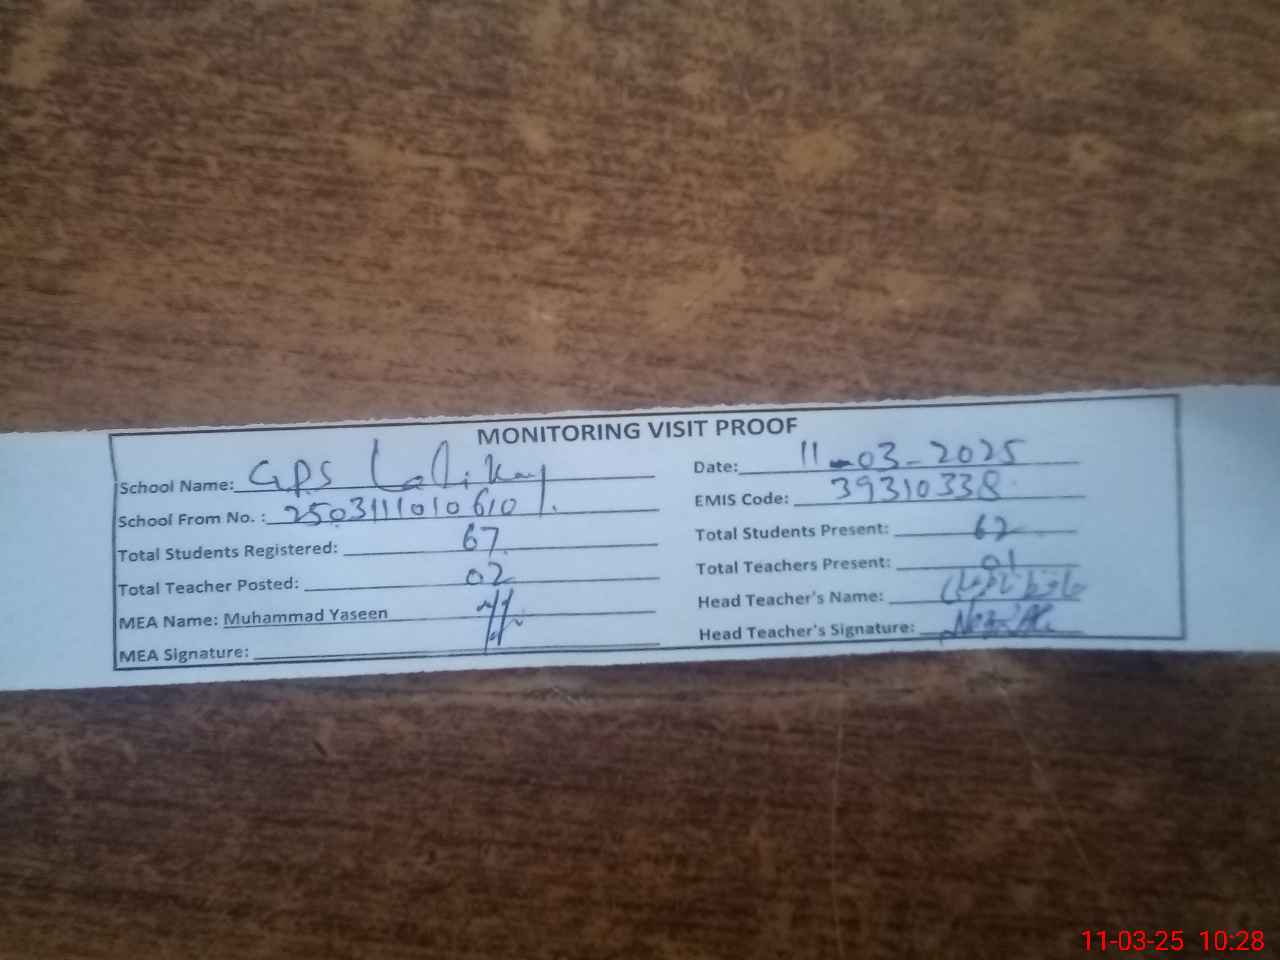 MONITORING VISIT PROOF
School Name: GPS Lalikay Date: 11-03-2025
School From No. : 2503111010610 EMIS Code: 39310338
Total Students Registered: 67 Total Students Present: 62
Total Teacher Posted: 02 Total Teachers Present: 01
MEA Name: Muhammad Yaseen Head Teacher's Name:
MEA Signature: Head Teacher's Signature:
11-03-25 10:28